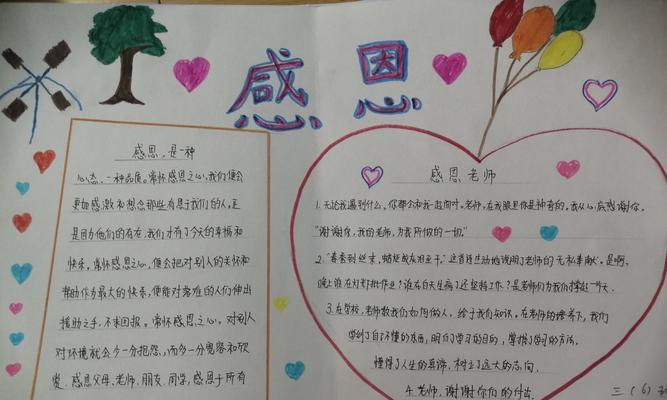 感恩
感恩，是一种
心态，一种品质。常怀感恩之心，我们便会
更加感激和想念那些有恩于我们的人，正
是因为他们的存在，我们才有了今天的幸福和
快乐，常怀感恩之心，便会把对别人的关怀和
帮助作为最大的快乐，便能对落难的人们伸出
援助之手，不求回报。常怀感恩之心，对别人
对环境就会少一分抱怨，而多一分宽容和欣
爱，感恩父母、老师、朋友、同学，感恩于所有
感恩老师
1.无论我遇到什么，你都会和我一起面对。老师，在我眼里你是神奇的。我从心底感谢你。
"谢谢你，我的老师，为我所做的一切。"
2."春蚕到丝末，蜡炬成灰泪至干。"这首诗生动地说明了老师的无私奉献。是啊，
晚上谁在灯下批作业？谁在白天生病了还坚持工作？是老师们为我们撑起一片天．
3.在学校，老师教我们如何做人，给予我们知识，在老师的培养下，我们
学到了自己不懂的东西，明白了学习的目的，掌握了学习的方法，
懂得了人生的真谛，树立了远大的志向．
4.老师，谢谢你们的付出．
三（6）